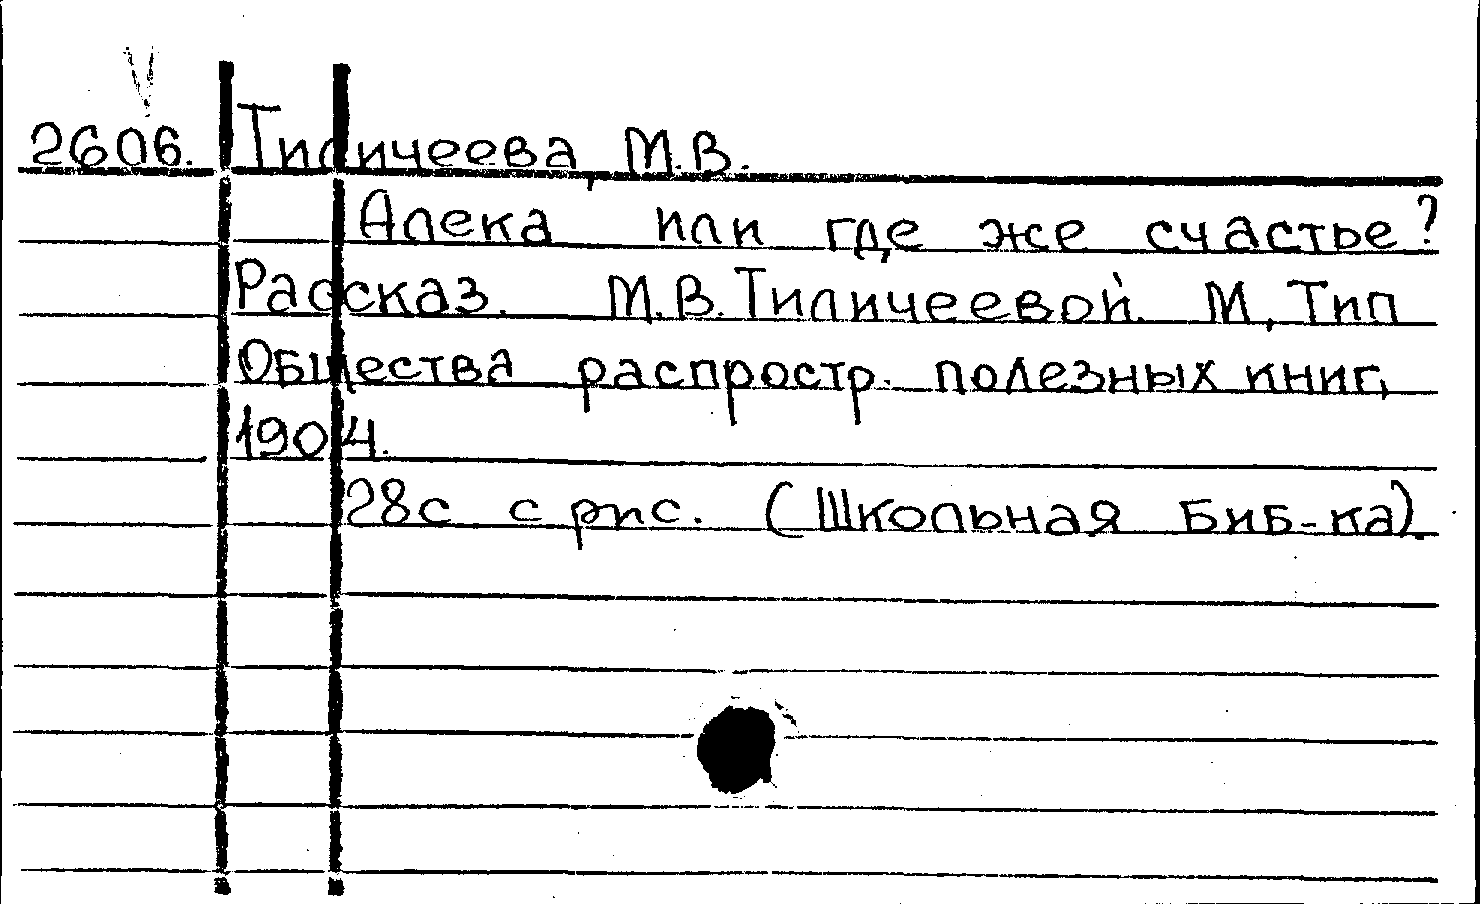 2606. Тиличеева, М.В.
Алека или где же счастье?
Рассказ. М.В. Тиличеевой. М, Тип
Общества распростр. полезных книг,
1904.
28с с рис. (Школьная Биб-ка).